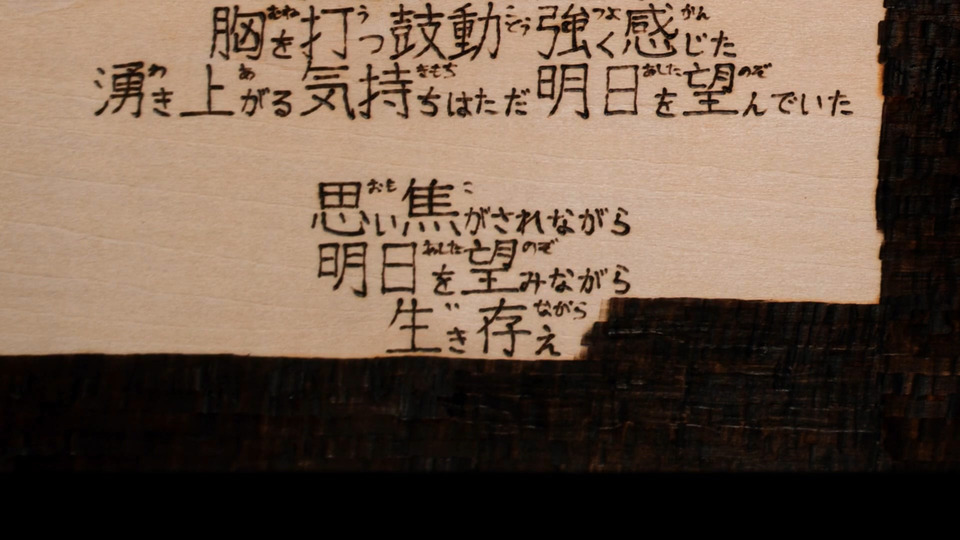 胸を打つ鼓動強く感じた
湧き上がる気持ちはただ明日を望んでいた
思い焦がされながら
明日を望みながら
生き存え